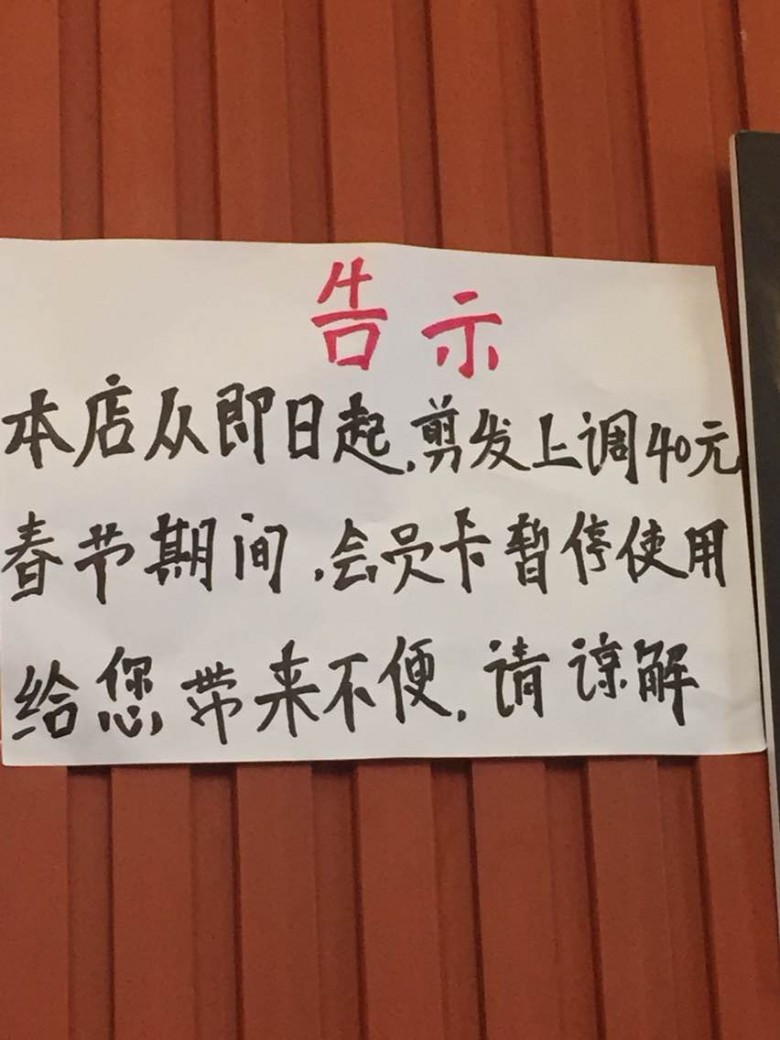 告示
本店从即日起,剪发上调40元
春节期间,会员卡暂停使用
给您带来不便,请谅解